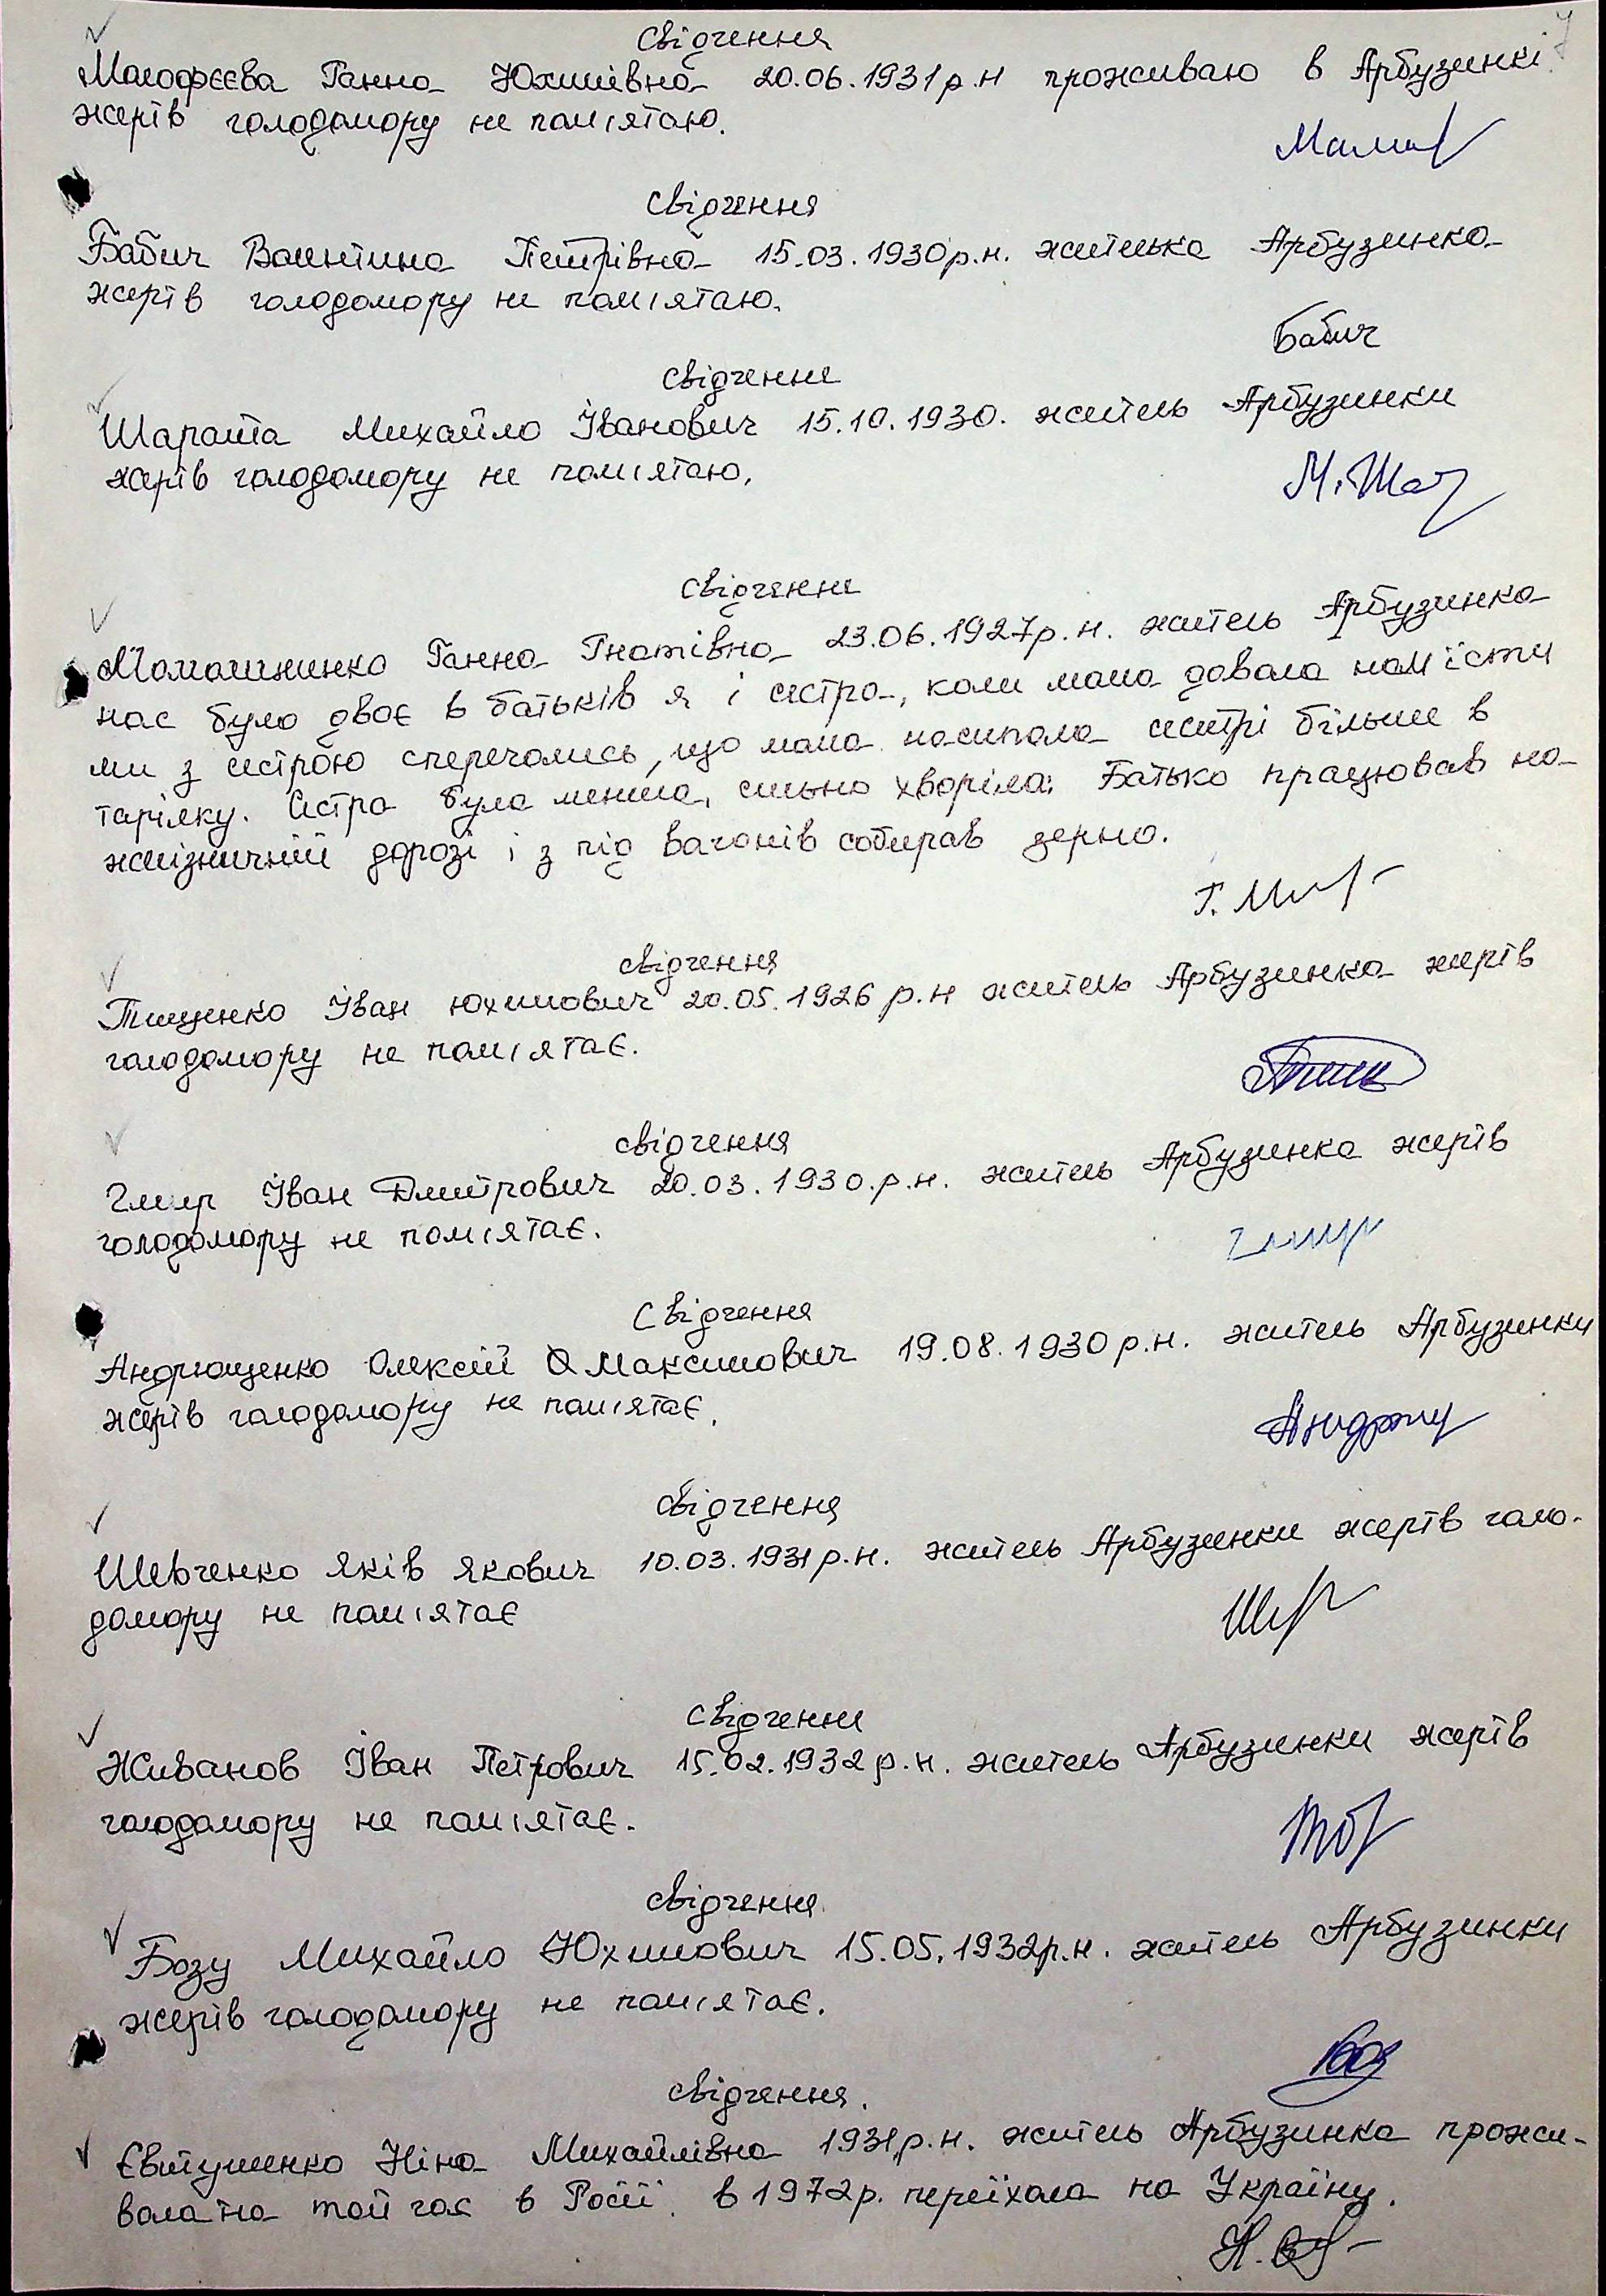 Свідчення
Малофєєва Ганна Юхимівна 20.06.1931р.н проживаю в Арбузинкі
жертв голодомору не пам'ятаю.
Свідчення
Бабич Валентина Петрівна 15.03.1930р.н. жителька Арбузинка
жертв голодомору не пам'ятаю.
Бабич
Свідчення
Михайло Іванович 15.10.1930. житель Арбузинки
жертв голодомору не пам'ятаю.
М. Ша
Свідчення
Ганна Гнатівна 23.06.1927р.н. житель Арбузинка
нас було двоє в батьків я і сестра, коли мама давала нам їсти
ми з сестрою сперечались, що мама насипала сестрі більше в
тарілку. Сестра була менша, сильно хворіла. Батько працював на
жилізничній дорозі і з під вагонів собирав зерно.
Свідчення
Тищенко Іван Юхимович 20.05.1926 р.н житель Арбузинка жертв
голодомору не пам'ятає.
Свідчення
Гмир Іван Дмитрович 20.03.1930.р.н. житель Арбузинка жертв
голодомору не пам'ятає.
Гмир
Свідчення
Андрющенко Олексій Максимович 19.08.1930р.н. житель Арбузинки
жертв голодомору не пам'ятає.
Андрющ
Свідчення
Шевченко Яків Якович 10.03.1931р.н. житель Арбузинки жертв голо-
домору не пам'ятає
Свідчення
Живанов Іван Петрович 15.02.1932р.н. житель Арбузинки жертв
голодомору не пам'ятає.
Свідчення
Бозу Михайло Юхимович 15.05.1932р.н. житель Арбузинки
жертв голодомору не пам'ятає.
Боз
Свідчення.
Євтушенко Ніна Михайлівна 1931р.н. житель Арбузинка прожи-
вала на той час в Росії. в 1972р. переїхала на Україну.